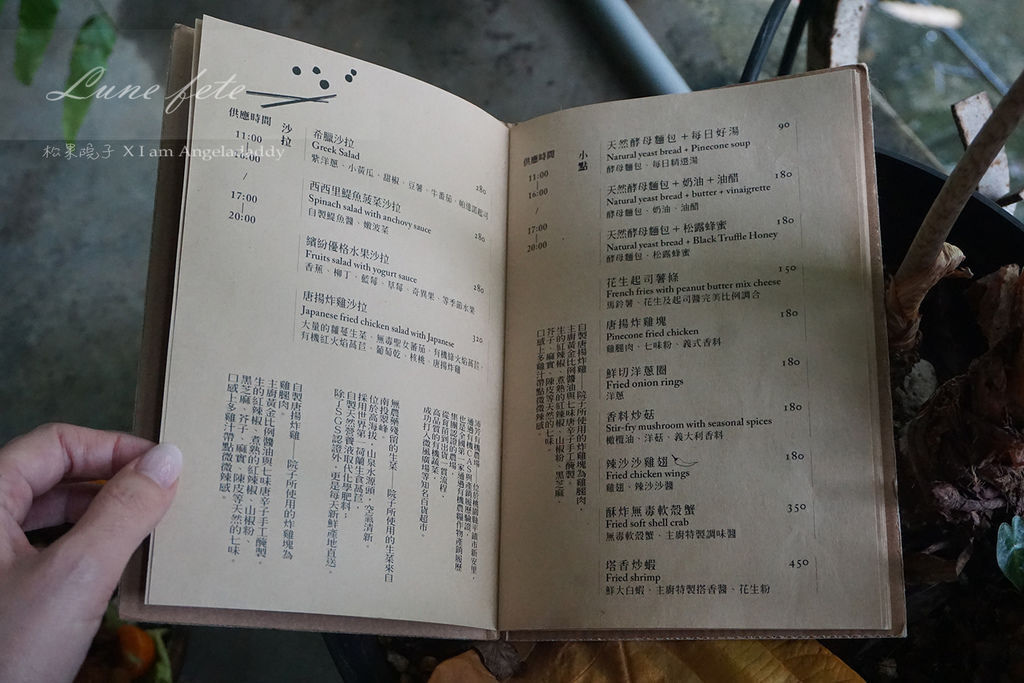 Lune fete
松果院子 X I am Angeladaddy
供應時間
11:00
17:00
20:00
沙拉
希臘沙拉
Greek Salad
280
紫洋蔥、小黃瓜、甜椒、豆薯、牛番茄、帕瑪諾起司
西西里鯷魚菠菜沙拉
Spinach salad with anchovy sauce
280
自製鯷魚醬、嫩波菜
繽紛優格水果沙拉
Fruits salad with yogurt sauce
280
香蕉、柳丁、藍莓、草莓、奇異果、等季節水果
唐揚炸雞沙拉
Japanese fried chicken salad with Japanese
320
大量的蘿蔓生菜、無毒聖女番茄、有機綠火焰萵苣、
有機紅火焰萵苣、葡萄乾、核桃、唐揚炸雞
無農藥殘留的生菜——院子所使用的生菜來自
南投翠峰。
位於高海拔，山泉水源頭，空氣清新。
採用世界第一荷蘭生食萵苣，
自製天然營養液取代化學肥料；
除了SGS認證外，更是每天新鮮產地直送。
自製唐揚炸雞——院子所使用的炸雞塊為
雞腿肉。
主廚黃金比例醬油與七味唐辛子手工醃製。
生的紅辣椒、煮熟的紅辣椒、山椒粉、
黑芝麻、芥子、麻實、陳皮等天然的七味。
口感上多雞汁帶點微微辣感。
供應時間
11:00
16:00
/
17:00
20:00
小點
天然酵母麵包＋每日好湯
90
Natural yeast bread + Pinecone soup
酵母麵包、每日精選湯
天然酵母麵包＋奶油＋油醋
180
Natural yeast bread + butter + vinaigrette
酵母麵包、奶油、油醋
天然酵母麵包＋松露蜂蜜
180
Natural yeast bread + Black Truffle Honey
酵母麵包、松露蜂蜜
花生起司薯條
150
French fries with peanut butter mix cheese
馬鈴薯、花生及起司醬完美比例調合
唐揚炸雞塊
180
Pinecone fried chicken
雞腿肉、七味粉、義式香料
鮮切洋蔥圈
180
Fried onion rings
洋蔥
香料炒菇
180
Stir-fry mushroom with seasonal spices
橄欖油、洋菇、義大利香料
辣沙沙雞翅
180
Fried chicken wings
雞翅、辣沙沙醬
酥炸無毒軟殼蟹
350
Fried soft shell crab
無毒軟殼蟹、主廚特製調味醬
塔香炒蝦
450
Fried shrimp
鮮大白蝦、主廚特製搭香醬、花生粉
自製唐揚炸雞——院子所使用的炸雞塊為雞腿肉，
主廚黃金比例醬油與七味唐辛子手工醃製。
生的紅辣椒、煮熟的紅辣椒、山椒粉、黑芝麻、
芥子、麻實、陳皮等天然的七味。
口感上多雞汁帶點微微辣感。